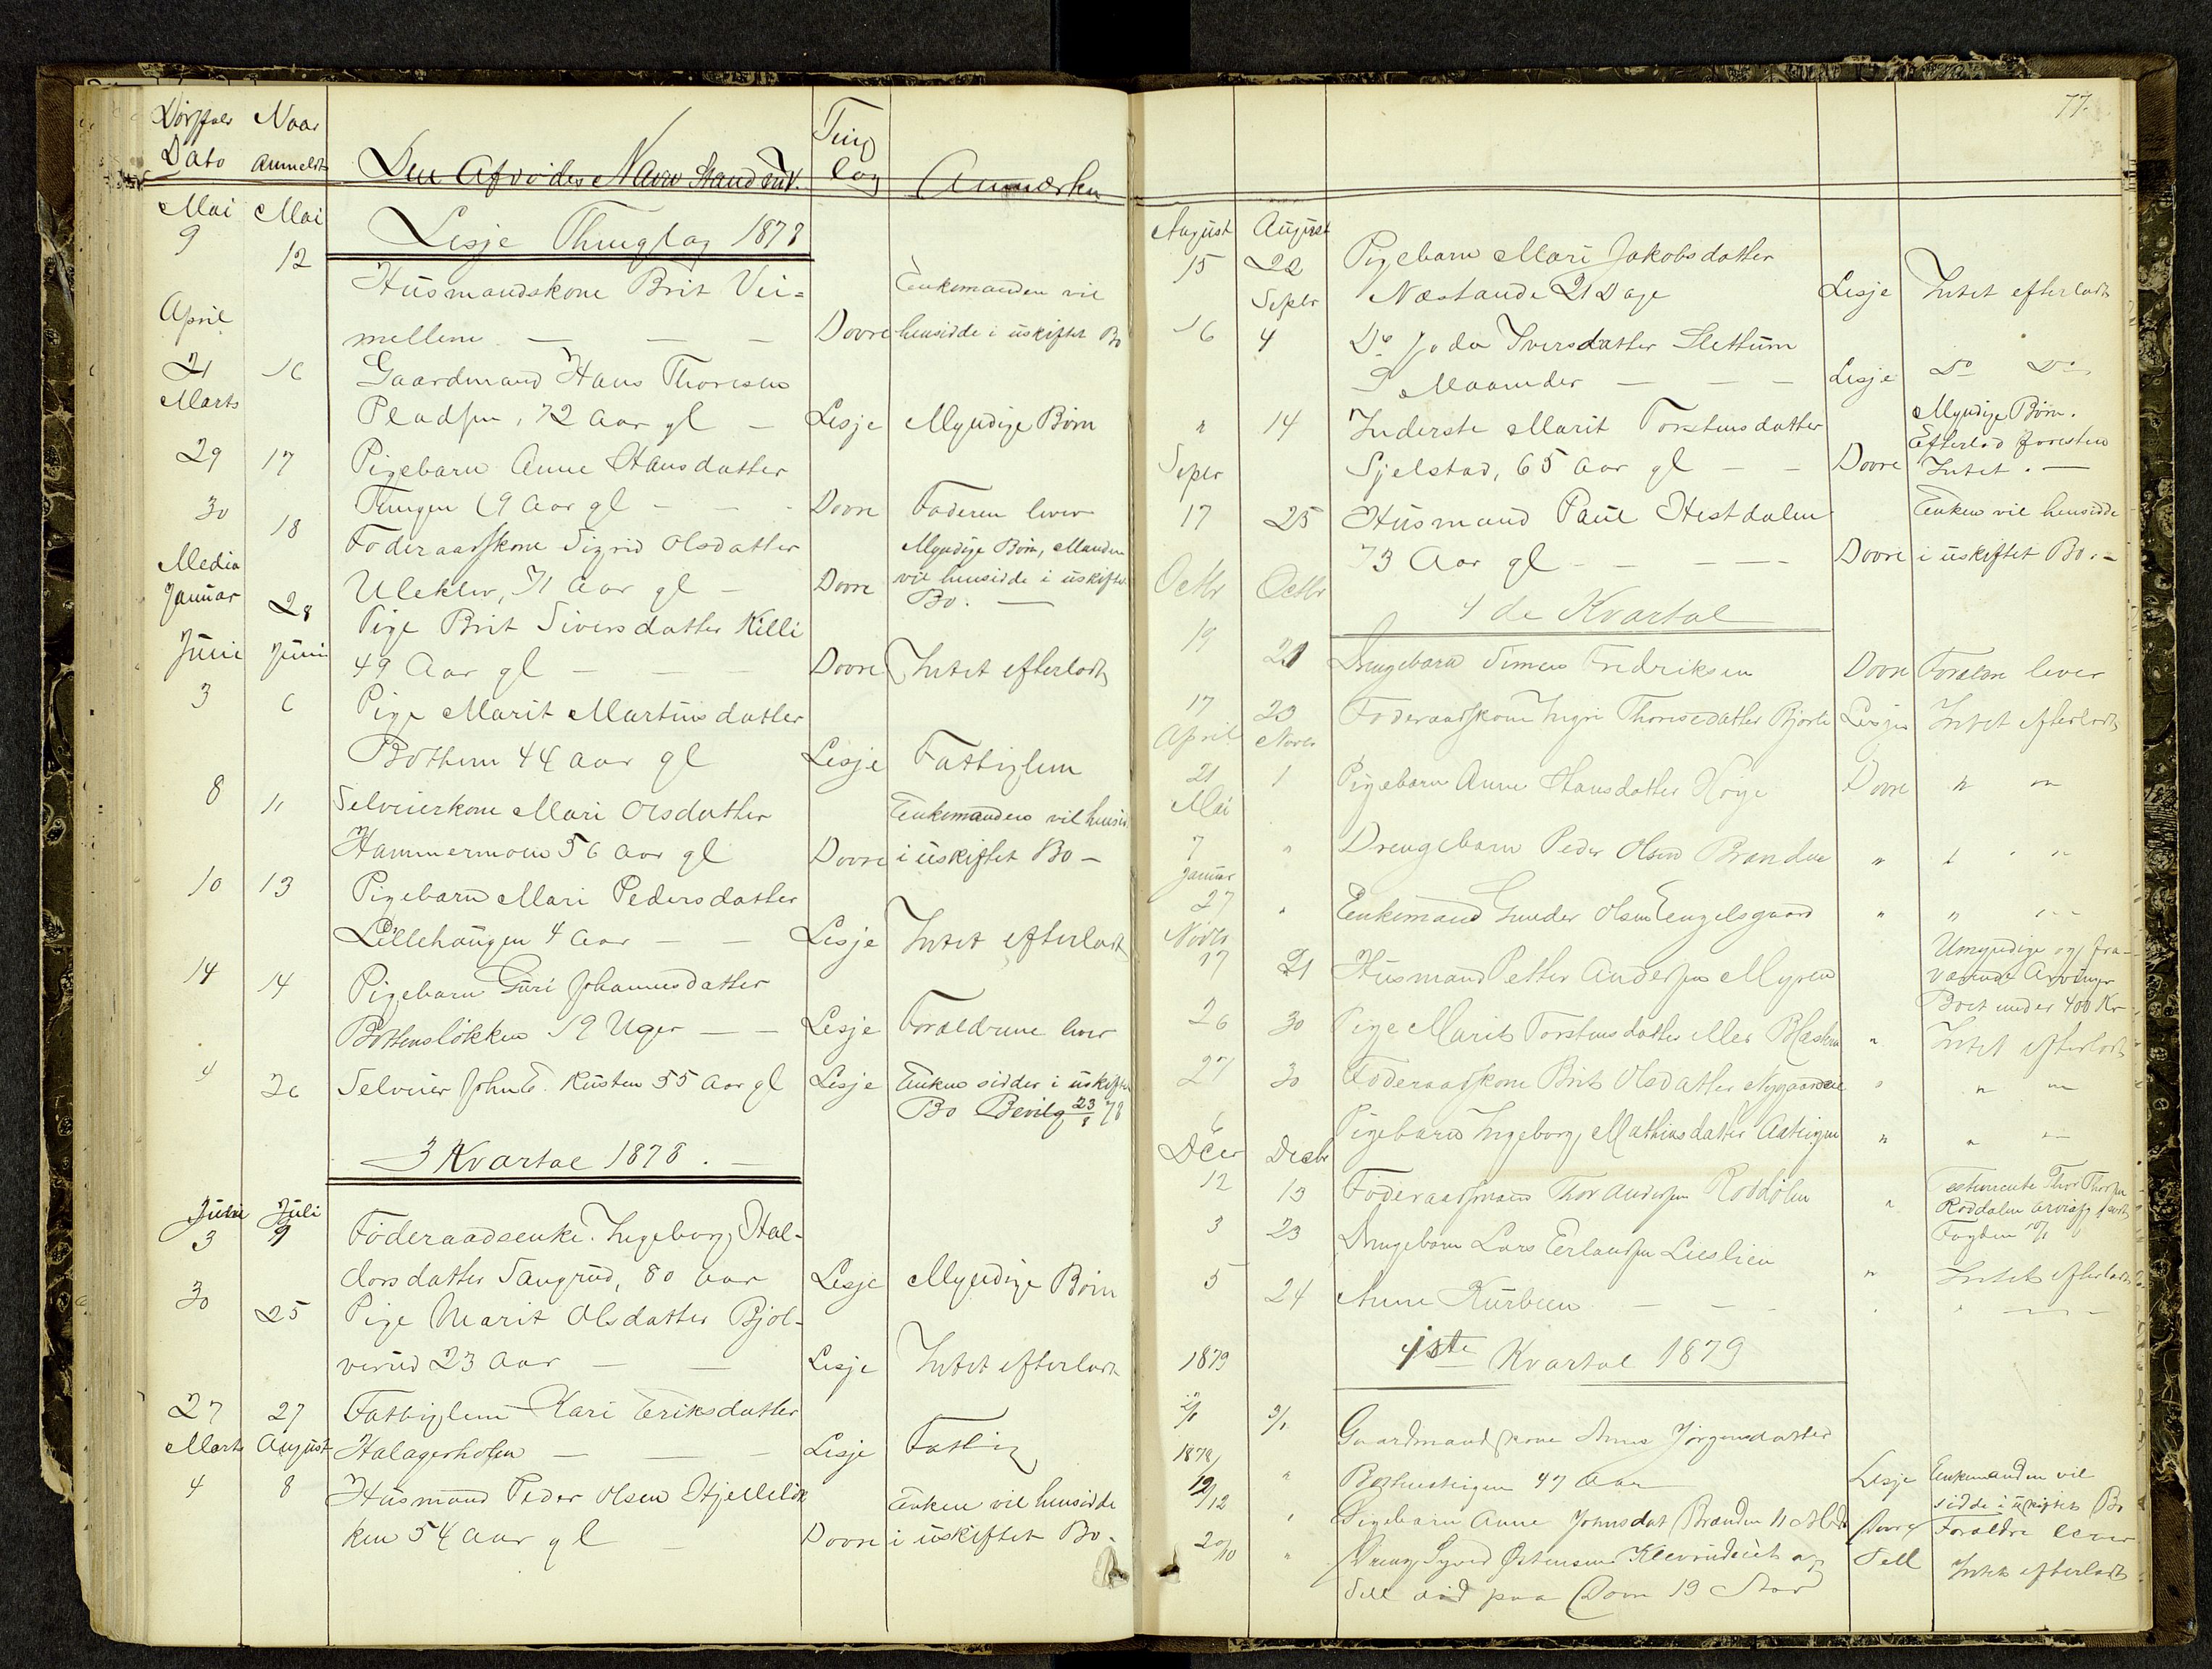 Dato Naar anmeldt Den Afdødes Navn Stand Ting lag Anmærkn
Lesje Thinglag 1878
Mai Mai
9 12 Husmandskone Brit Vei=
Enkemanden vil
mellem — — — Dovre hensidde i uskiftet Bo
April
21 16 Gaardmand Hans Thoresen
Marts
Pladsen, 72 Aar gl — Lesje Myndige Børn
29 17 Pigebarn Anne Hansdatter
9 Aar gl - - - Dovre Faderen lever
30 18 Føderaadskone Sigrid Olsdatter
Myndige Børn, Manden
Uleklev, 71 Aar gl - Dovre vil hensidde i uskiftet
Bo. —
Media
Januar 28 Pige Brit Siversdatter Killi
Juni Juni 49 Aar gl — — — Dovre Intet efterladt
3 6 Pige Marit Martinsdatter
Bottem 44 Aar gl Lesje Fattiglem
8 11 Selveierkone Mari Olsdatter
Enkemanden vil hensid
Hammermoen 56 Aar gl Dovre i uskiftet Bo -
10 13 Pigebarn Mari Pedersdatter
Lillehaugen 4 Aar — — Lesje Intet efterladt
14 14 Pigebarn Guri Johannesdatter
Bottensløkken 19 Uger — — Lesje Forældrene lever
4 26 Selveier John E. Rusten 55 Aar gl Lesje Enken sidder i uskiftet
Bo Bevilg 23/8 78
3 Kvartal 1878. —
Juni Juli
3 9 Føderaadsenke Ingeborg Hal-
dorsdatter Sangrud, 80 Aar Lesje Myndige Børn
30 25 Pige Marit Olsdatter Bjøl-
verud 23 Aar — — Lesje Intet efterladt
27 27 Fattiglem Kari Eriksdatter
Marts August Halagerholen — — Lesje Fattig
4 8 Husmand Peder Olsen Hjelleløk
Enken vil hensidde
ken 54 Aar gl — Dovre i uskiftet Bo.
77.
August August
15 22 Pigebarn Mari Jakobsdatter
Septr Næstande 21 Dage Lesje Intet efterladt
16 4 Do Joda Iversdatter Slettum
9 Maaneder — — — Lesje Do Do
" 14 Inderste Marit Torstensdatter
Myndige Børn.
Efterlod foresten
Septr Sjelstad, 65 Aar gl — — Dovre Intet. —
17 25 Husmand Paul Hestdalen
Enken vil hensidde
73 Aar gl - — — — Dovre i uskiftet Bo. -
Octbr Octbr
4de Kvartal
19 21 Drengebarn Simen Fredriksen Dovre Forældre lever
17 23 Føderaadskone Ingri Thoresdatter Bjorli Lesje Intet efterladt
April Novbr
21 1 Pigebarn Anne Hansdatter Høge Dovre " "
Mai
7 " Drengebarn Peder Olsen Branden " " "
Januar
27 " Enkemand Gunder Olsen Engelsgaard " " "
Novbr
17 21 Husmand Petter Andersen Myren
Umyndige og fra-
værende Arvinger
Boet under 400 Kr
26 30 Pige Marit Torstensdatter eller " Intet efterladt
27 30 Føderaadskone Brit Olsdatter Nygaarden " " "
6 Pigebarn Ingeborg Mathiasdatter " " "
Decbr Decbr
12 13 Føderaadsmand Thor Andersen Roddølen
Thor Thorsen
Roddalen
Fogden
3 23 Drengebarn Lars Erlandsen Lieslien " Intet efterladt
5 24 Anne Kurbeen — — -
1ste Kvartal 1879
1879
2/1 3/1 Gaardmandskone Anne Jørgensdatter
1878
Bottensteigen 47 Aar Lesje Enkemanden vil
sidde i uskiftet Bo
12/12 " Pigebarn Anne Johnsdat Branden 11 Dovre Forældre lever
20/10 " Dreng Syver Østensen af Sell Intet efterladt
Sell død paa Dovre 19 Aar